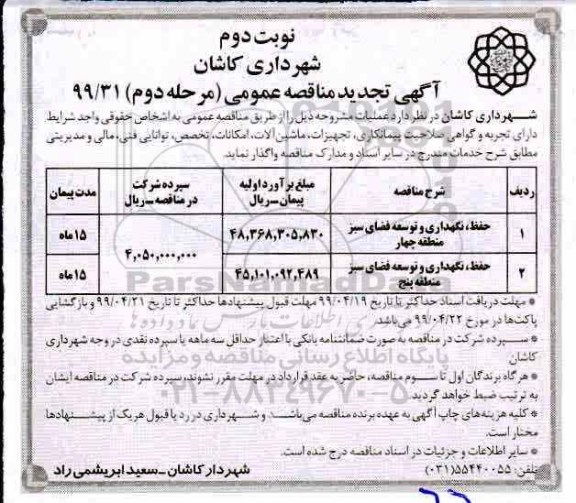 نوبت دوم
شهرداری کاشان
آگهی تجدید مناقصه عمومی (مرحله دوم) ۹۹/۳۱
شهرداری کاشان در نظر دارد عملیات مشروحه ذیل را از طریق مناقصه عمومی به اشخاص حقوقی واجد شرایط
دارای تجربه و گواهی صلاحیت پیمانکاری، تجهیزات، ماشین آلات، امکانات، تخصص، توانایی فنی، مالی و مدیریتی
مطابق شرح خدمات مندرج در سایر اسناد و مدارک مناقصه واگذار نماید.
ردیف شرح مناقصه مبلغ برآورد اولیه پیمان_ریال سپرده شرکت در مناقصه_ریال مدت پیمان
۱ حفظ، نگهداری و توسعه فضای سبز منطقه چهار ۴۸,۳۶۸,۳۰۵,۸۳۰ ۴,۰۵۰,۰۰۰,۰۰۰ ۱۵ ماه
۲ حفظ، نگهداری و توسعه فضای سبز منطقه پنج ۴۵,۱۰۱,۰۹۲,۴۸۹ ۱۵ ماه
* مهلت دریافت اسناد حداکثر تا تاریخ ۹۹/۰۴/۱۹ مهلت قبول پیشنهادها حداکثر تا تاریخ ۹۹/۰۴/۲۱ و بازگشایی
پاکت‌ها در مورخ ۹۹/۰۴/۲۲ می‌باشد.
* سپرده شرکت در مناقصه به صورت ضمانتنامه بانکی با اعتبار حداقل سه ماهه یا سپرده نقدی در وجه شهرداری
کاشان
* هر گاه برندگان اول تا سوم مناقصه، حاضر به عقد قرارداد در مهلت مقرر نشوند، سپرده شرکت در مناقصه ایشان
به ترتیب ضبط خواهد گردید.
* کلیه هزینه‌های چاپ آگهی به عهده برنده مناقصه می‌باشد و شهرداری در رد یا قبول هر یک از پیشنهادها
مختار است.
* سایر اطلاعات و جزئیات در اسناد مناقصه درج شده است.
تلفن: ۵۵۴۴۰۰۵۵(۰۳۱)
شهردار کاشان _ سعید ابریشمی راد
ParsNamadData
پایگاه اطلاع رسانی مناقصه و مزایده
۰۲۱-۸۸۳۴۹۶۷۰-۵